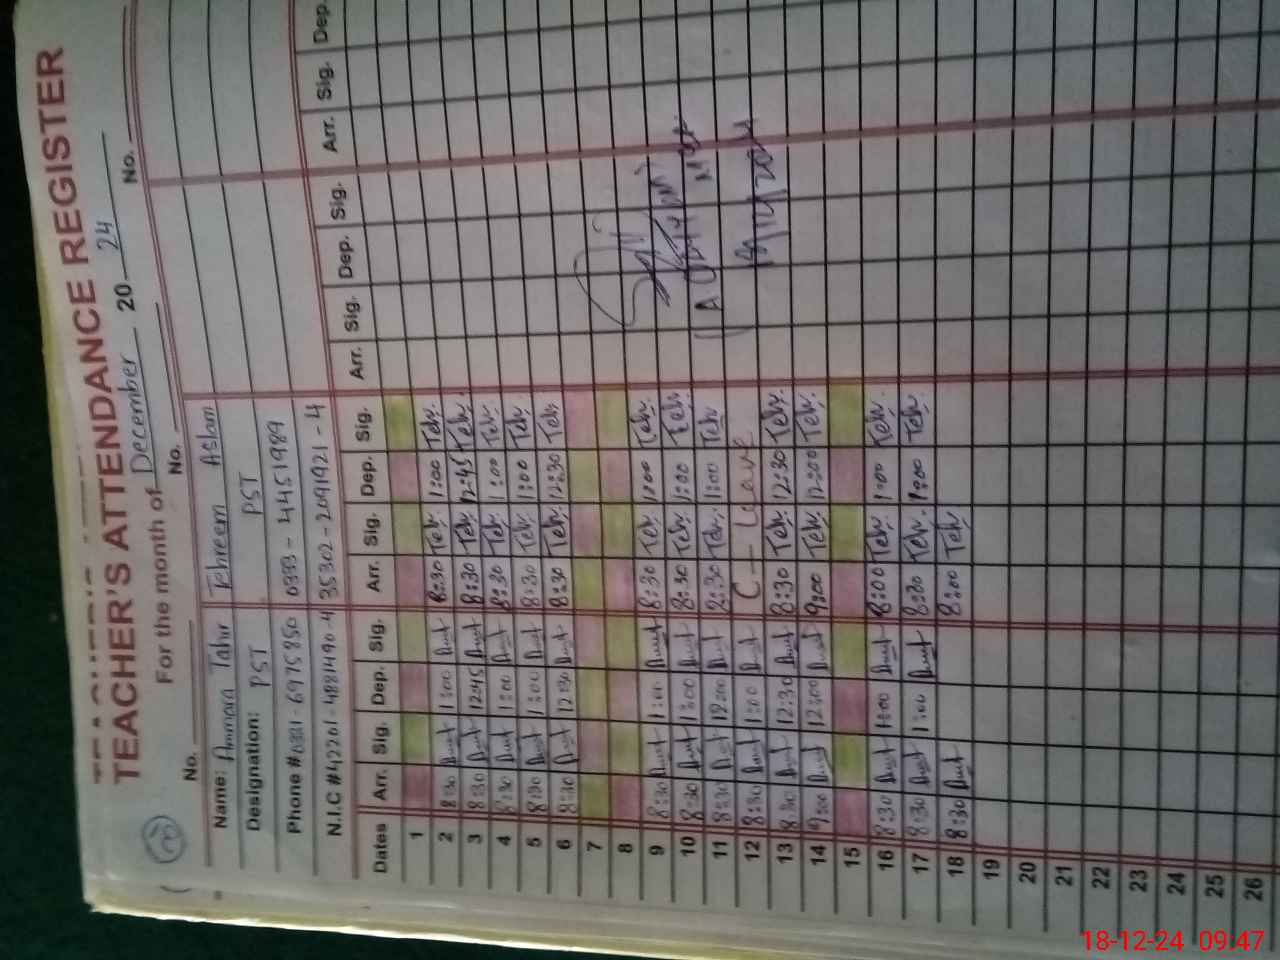 TEACHER'S ATTENDANCE REGISTER
For the month of December 20 24
No. No. No.
Name: Ammara Tahir Tehreem Aslam
Designation: PST PST
Phone # 0331-6975850 0333-4451989
N.I.C # 42201-4881490-4 35302-2091921-4
Dates Arr. Sig. Dep. Sig. Arr. Sig. Dep. Sig. Arr. Sig. Dep. Sig. Arr. Sig. Dep.
1
2 8:30 1:00 8:30 Teh. 1:00 Teh.
3 8:30 12:45 8:30 Teh. 12:45 Teh.
4 8:30 1:00 8:30 Teh. 1:00 Teh.
5 8:30 1:00 8:30 Teh. 1:00 Teh.
6 8:30 12:30 8:30 Teh. 12:30 Teh.
7
8
9 8:30 1:00 8:30 Teh. 1:00 Teh.
10 8:30 1:00 8:30 Teh. 1:00 Teh.
11 8:30 12:00 8:30 Teh. 1:00 Teh
12 8:30 1:0 C - leave
13 8:30 12:30 8:30 Teh. 12:30 Teh.
14 9:00 12:00 9:00 Teh. 12:00 Teh.
15
16 8:30 1:00 8:00 Teh. 1:00 Teh.
17 8:30 1:00 8:30 Teh. 1:00 Teh.
18 8:30 8:00 Teh
19
20
21
22
23
24
25
26
18-12-24 09:47